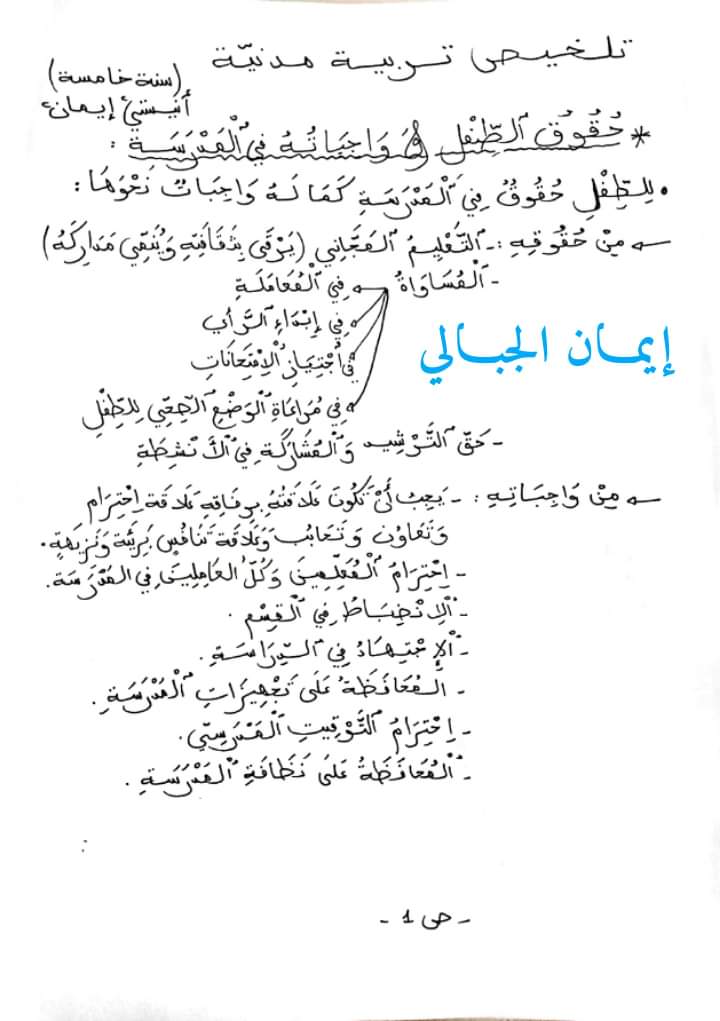 تلخيص تربية مدنيّة
(سنة خامسة)
أنيستي إيمان
* حُقُوقُ الطِّفْلِ وَ وَاجِبَاتُهُ فِي الْمَدْرَسَةِ :
• لِلطِّفْلِ حُقُوقٌ فِي الْمَدْرَسَةِ كَمَا لَهُ وَاجِبَاتٌ نَحْوَهَا :
← مِنْ حُقُوقِهِ : - التَّعْلِيمُ الْمَجَّانِي (يَرْقَى بِثَقَافَتِهِ وَيُنَمِّي مَدَارِكَهُ)
- الْمُسَاوَاةُ ← فِي الْمُعَامَلَةِ
← فِي إِبْدَاءِ الرَّأْيِ
← فِي اجْتِيَازِ الْاِمْتِحَانَاتِ
← فِي مُرَاعَاةِ الْوَضْعِ الصِّحِّي لِلطِّفْلِ
إيمان الجبالي
- حَقّ التَّرَشُّحِ وَالْمُشَارَكَةِ فِي الْأَنْشِطَةِ
← مِنْ وَاجِبَاتِهِ : - يَجِبُ أَنْ تَكُونَ عَلَاقَتُهُ بِرِفَاقِهِ عَلَاقَة اِحْتِرَام
وَتَعَاوُن وَتَحَابُب وَعَلَاقَة تَنَافُسٍ بَرِيئَة وَنَزِيهَةٍ .
- اِحْتِرَامُ الْمُعَلِّمِينَ وَكُلّ العَامِلِينَ فِي المَدْرَسَة .
- الْاِنْضِبَاطُ فِي الْقِسْمِ .
- الْاِجْتِهَادُ فِي الدِّرَاسَةِ .
- الْمُحَافَظَةُ عَلَى تَجْهِيزَاتِ الْمَدْرَسَةِ .
- اِحْتِرَامُ التَّوْقِيتِ الْمَدْرَسِيّ .
- الْمُحَافَظَةُ عَلَى نَظَافَةِ الْمَدْرَسَةِ .
- ص 1 -